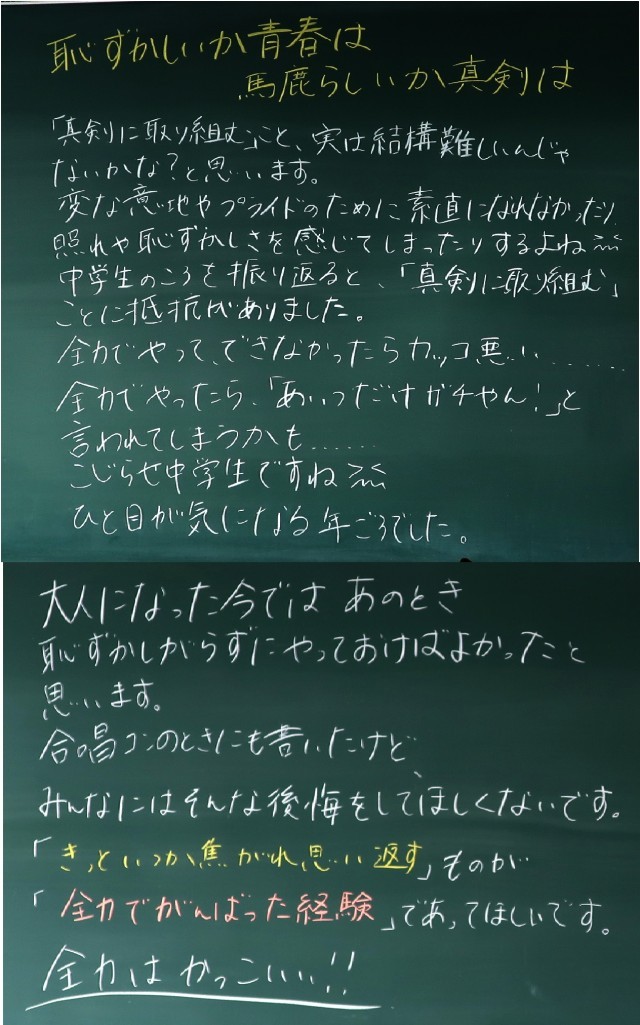 恥ずかしいか青春は
馬鹿らしいか真剣は
「真剣に取り組む」こと、実は結構難しいんじゃ
ないかな？と思います。
変な意地やプライドのために素直になれなかったり
照れや恥ずかしさを感じてしまったりするよね
中学生のころを振り返ると、「真剣に取り組む」
ことに抵抗がありました。
全力でやって、できなかったらカッコ悪い……
全力でやったら、「あいつだけガチやん！」と
言われてしまうかも……
こじらせ中学生ですね
ひと目が気になる年ごろでした。
大人になった今では あのとき
恥ずかしがらずにやっておけばよかったこと
思います。
合唱コンのときにも書いたけど、
みんなにはそんな後悔をしてほしくないです。
「きっといつか焦がれ思い返す」ものが
「全力でがんばった経験」であってほしいです。
全力はかっこいい!!